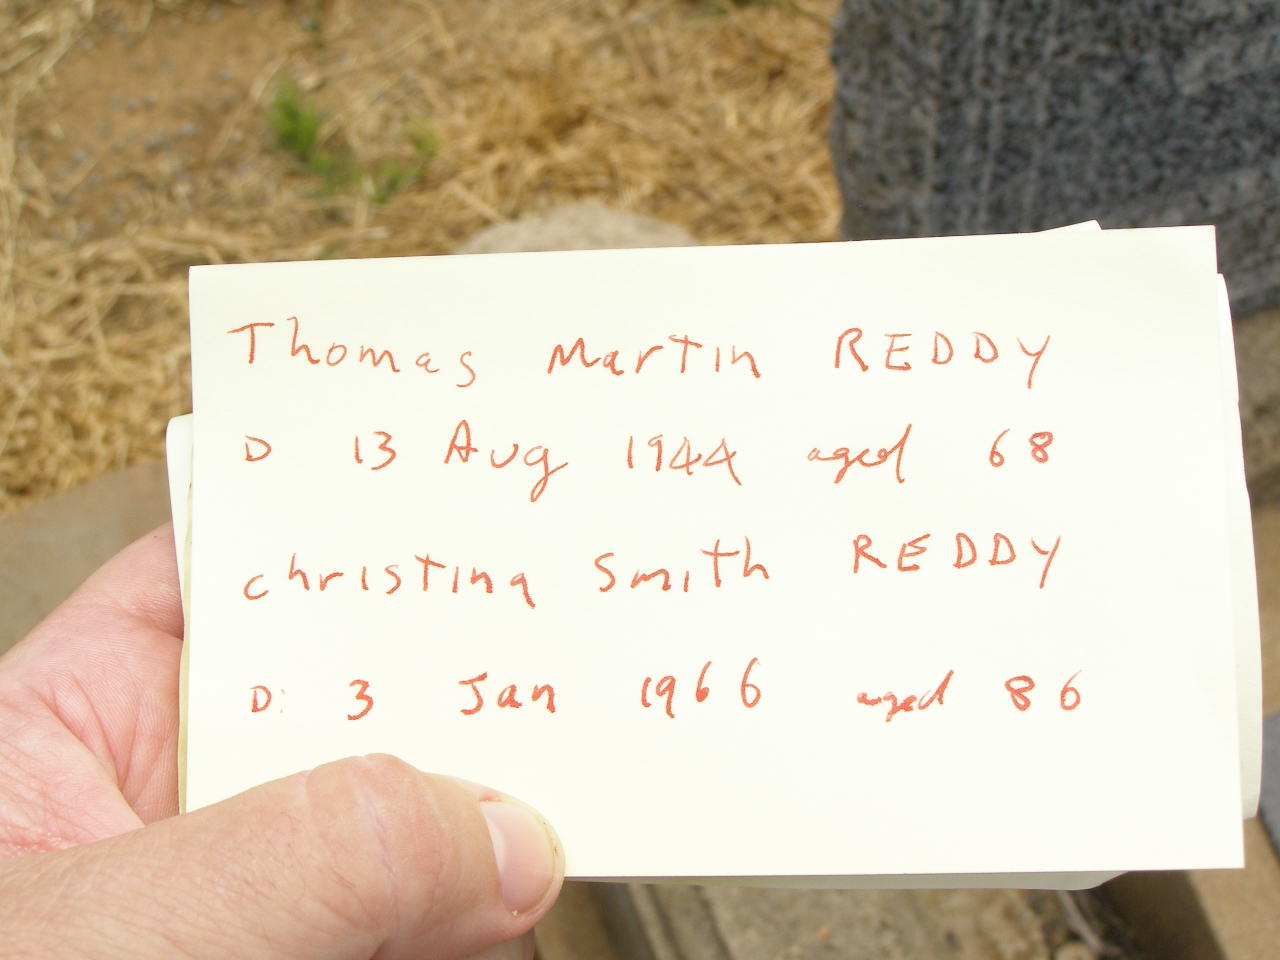 Thomas Martin REDDY
D 13 Aug 1944 aged 68
christina Smith REDDY
D: 3 Jan 1966 aged 86